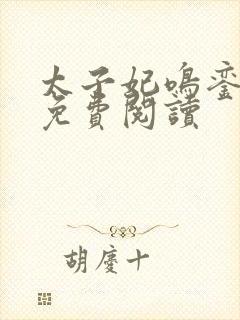 太子妃鳴鑾
免費閱讀
胡慶十